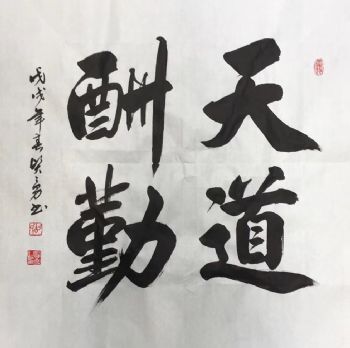 天道
酬勤
戊戌年春